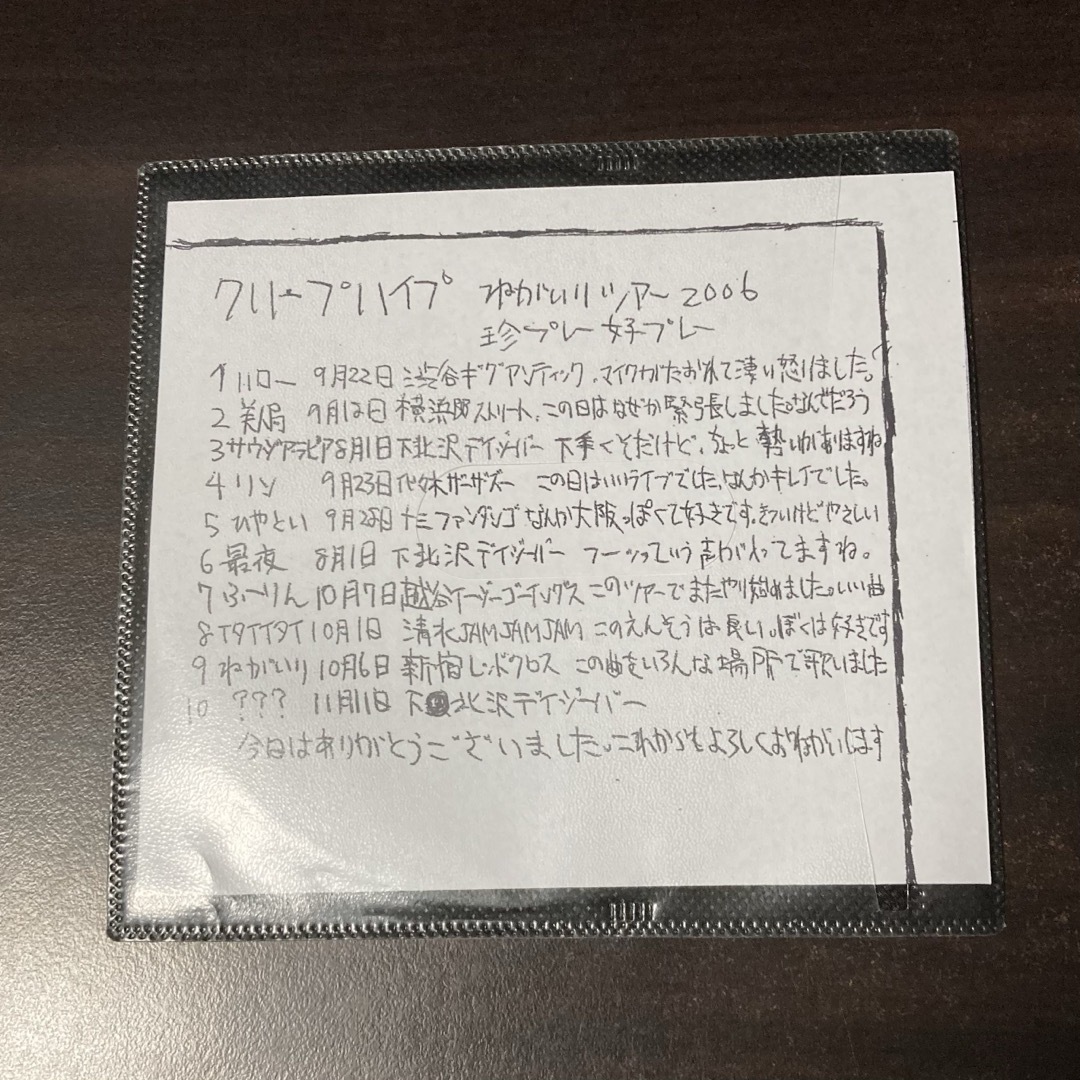 クリープハイプ ねがいりツアー2006
珍プレー好プレー
1 ハロー 9月22日 渋谷ギグアンティック、マイクがたおれて凄い怒りました。
2 美人局 9月12日 横浜B.B.ストリート、この日はなぜか緊張しました。なんでだろう
3 サウジアラビア 8月1日 下北沢デイジーバー 下手くそだけど、ちょっと勢いがありますね
4 リンリン 9月23日 代々木ザーザズー この日はいいライブでした、なんかキレイでした。
5 ひやとい 9月28日 十三ファンダンゴ なんか大阪っぽくて好きです。きついけどやさしい
6 最夜 8月1日 下北沢デイジーバー フーッっていう声が入ってますね。
7 ふーりん 10月7日 越谷イージーゴーイングス このツアーでまたやり始めました。いい曲
8 イタイイタイ 10月1日 清水JAMJAMJAM このえんそうは長い。ぼくは好きです
9 ねがいり 10月6日 新宿レッドクロス この曲をいろんな場所で歌いました
10 ??? 11月11日 下北沢デイジーバー
今日はありがとうございました。これからもよろしくおねがいします